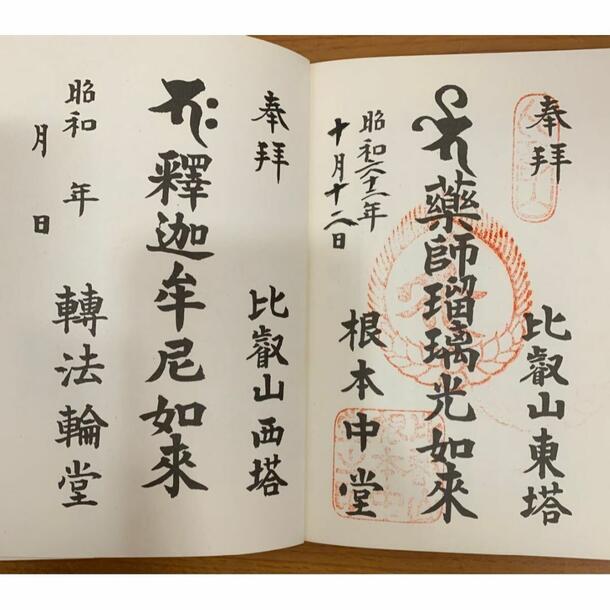 奉拝
比叡山東塔
藥師瑠璃光如來
昭和六十三年
十月十二日
根本中堂
奉拝
比叡山西塔
釋迦牟尼如來
昭和 年
月 日
轉法輪堂